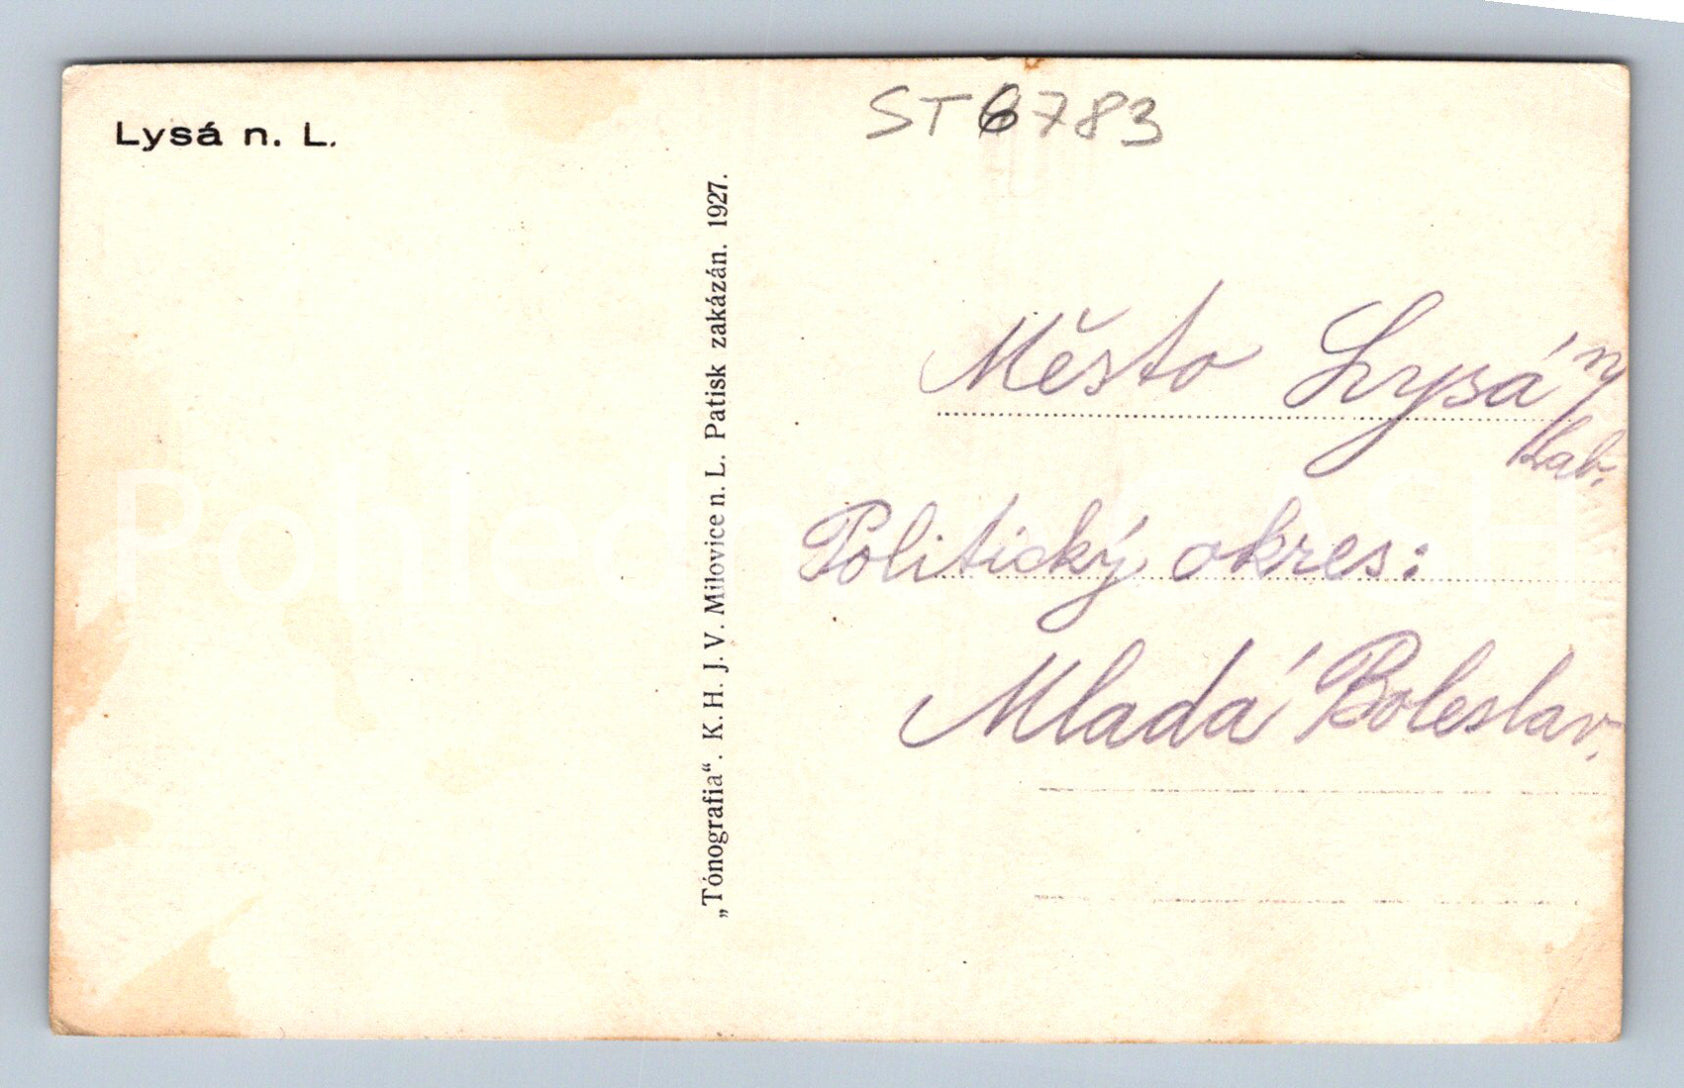 Lysá n. L.
ST 6783
„Tónografia“. K. H. J. V. Milovice n. L. Patisk zakázán. 1927.
Město Lysá n/
Lab.
Politický okres:
Mladá Boleslav.